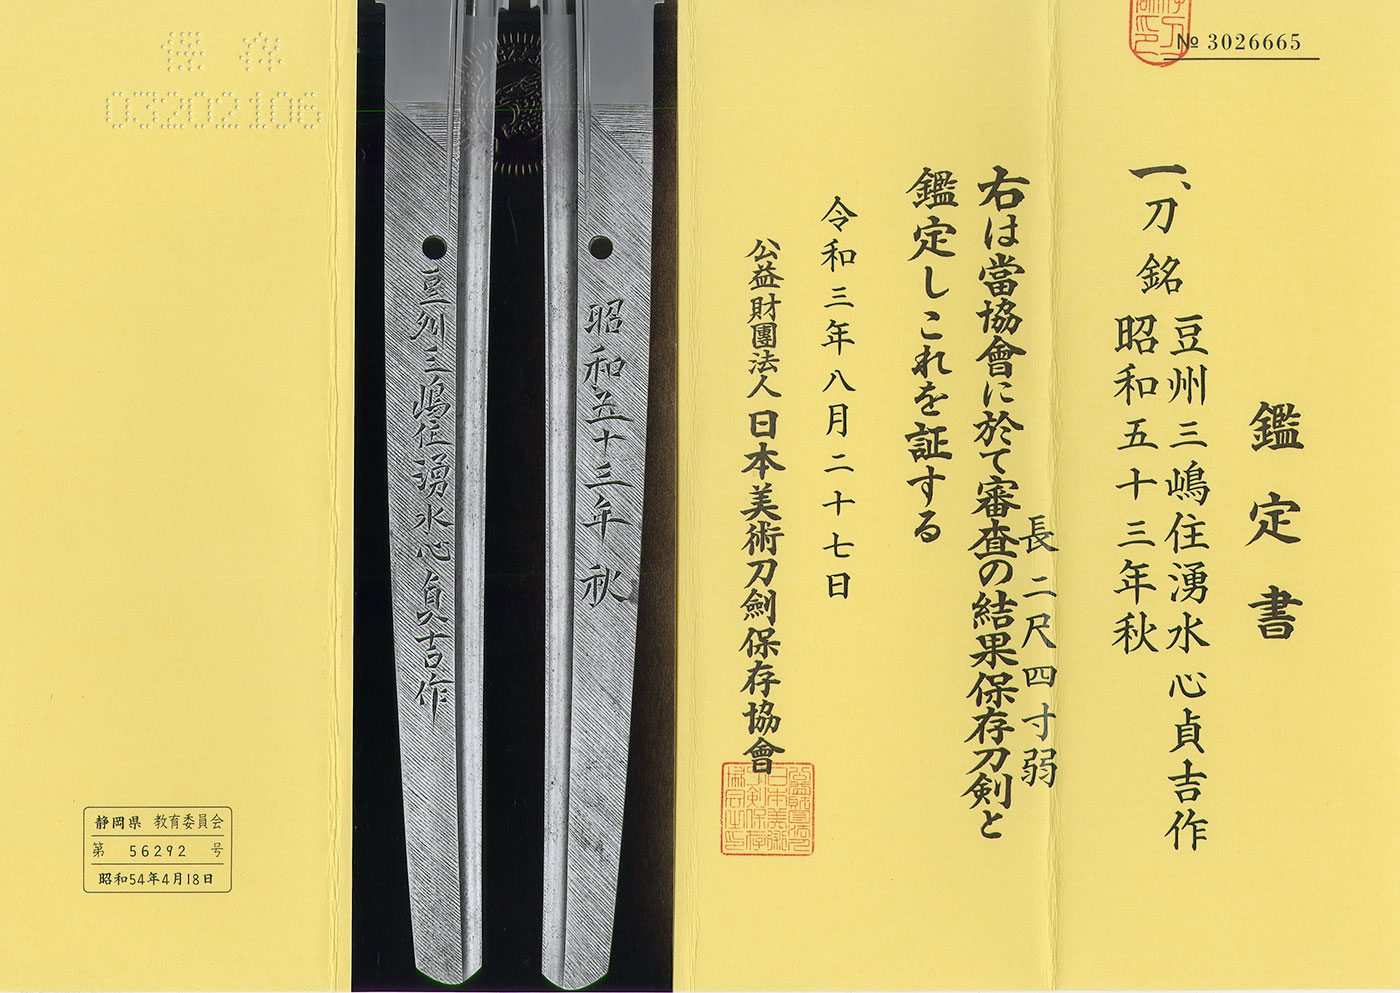 № 3026665
鑑定書
一、刀 銘 豆州三嶋住湧水心貞吉作
昭和五十三年秋
長 二尺四寸弱
右は當協會に於て審査の結果保存刀剣と
鑑定しこれを証する
令和三年八月二十七日
公益財團法人 日本美術刀劍保存協會
昭和五十三年秋
豆州三嶋住湧水心貞吉作
保存
03202106
静岡県 教育委員会
第 56292 号
昭和54年4月18日